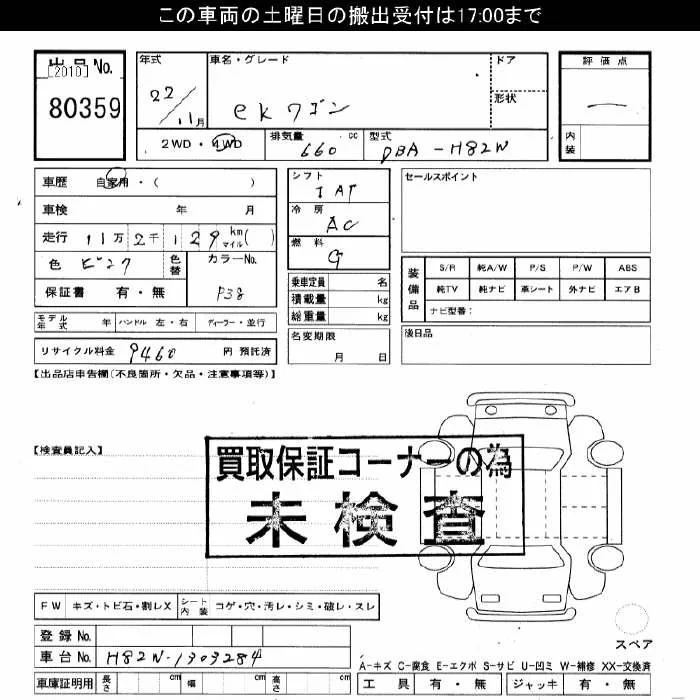 この車両の土曜日の搬出受付は17:00まで
出品No.
[2010]
80359
年式
22/11月
車名・グレード
ekワゴン
ドア
形状
評価点
内装
2WD・4WD
排気量 660 cc
型式 DBA-H82W
車歴 自家用・( )
車検 年 月
走行 11万2千129km マイル( )
色 ピンク 色替
カラーNo. P38
保証書 有・無
シフト
IAT
冷房
AC
燃料
G
乗車定員 名
積載量 kg
総重量 kg
セールスポイント
装備品
S/R 純A/W P/S P/W ABS
純TV 純ナビ 革シート 外ナビ エアB
ナビ型番:
モデル年式 年 ハンドル 左・右 ディーラー・並行
名変期限
月 日
後日品
リサイクル料金 9460 円 預託済
【出品店申告欄(不良箇所・欠品・注意事項等)】
【検査員記入】
買取保証コーナーの為
未検査
FW キズ・トビ石・割レX シート内装 コゲ・穴・汚レ・シミ・破レ・スレ
スペア
登録No.
車台No. H82W-1303284
A-キズ C-腐食 E-エクボ S-サビ U-凹ミ W-補修 XX-交換済
車庫証明用 長さ cm 幅 cm 高さ cm
工具 有・無 ジャッキ 有・無